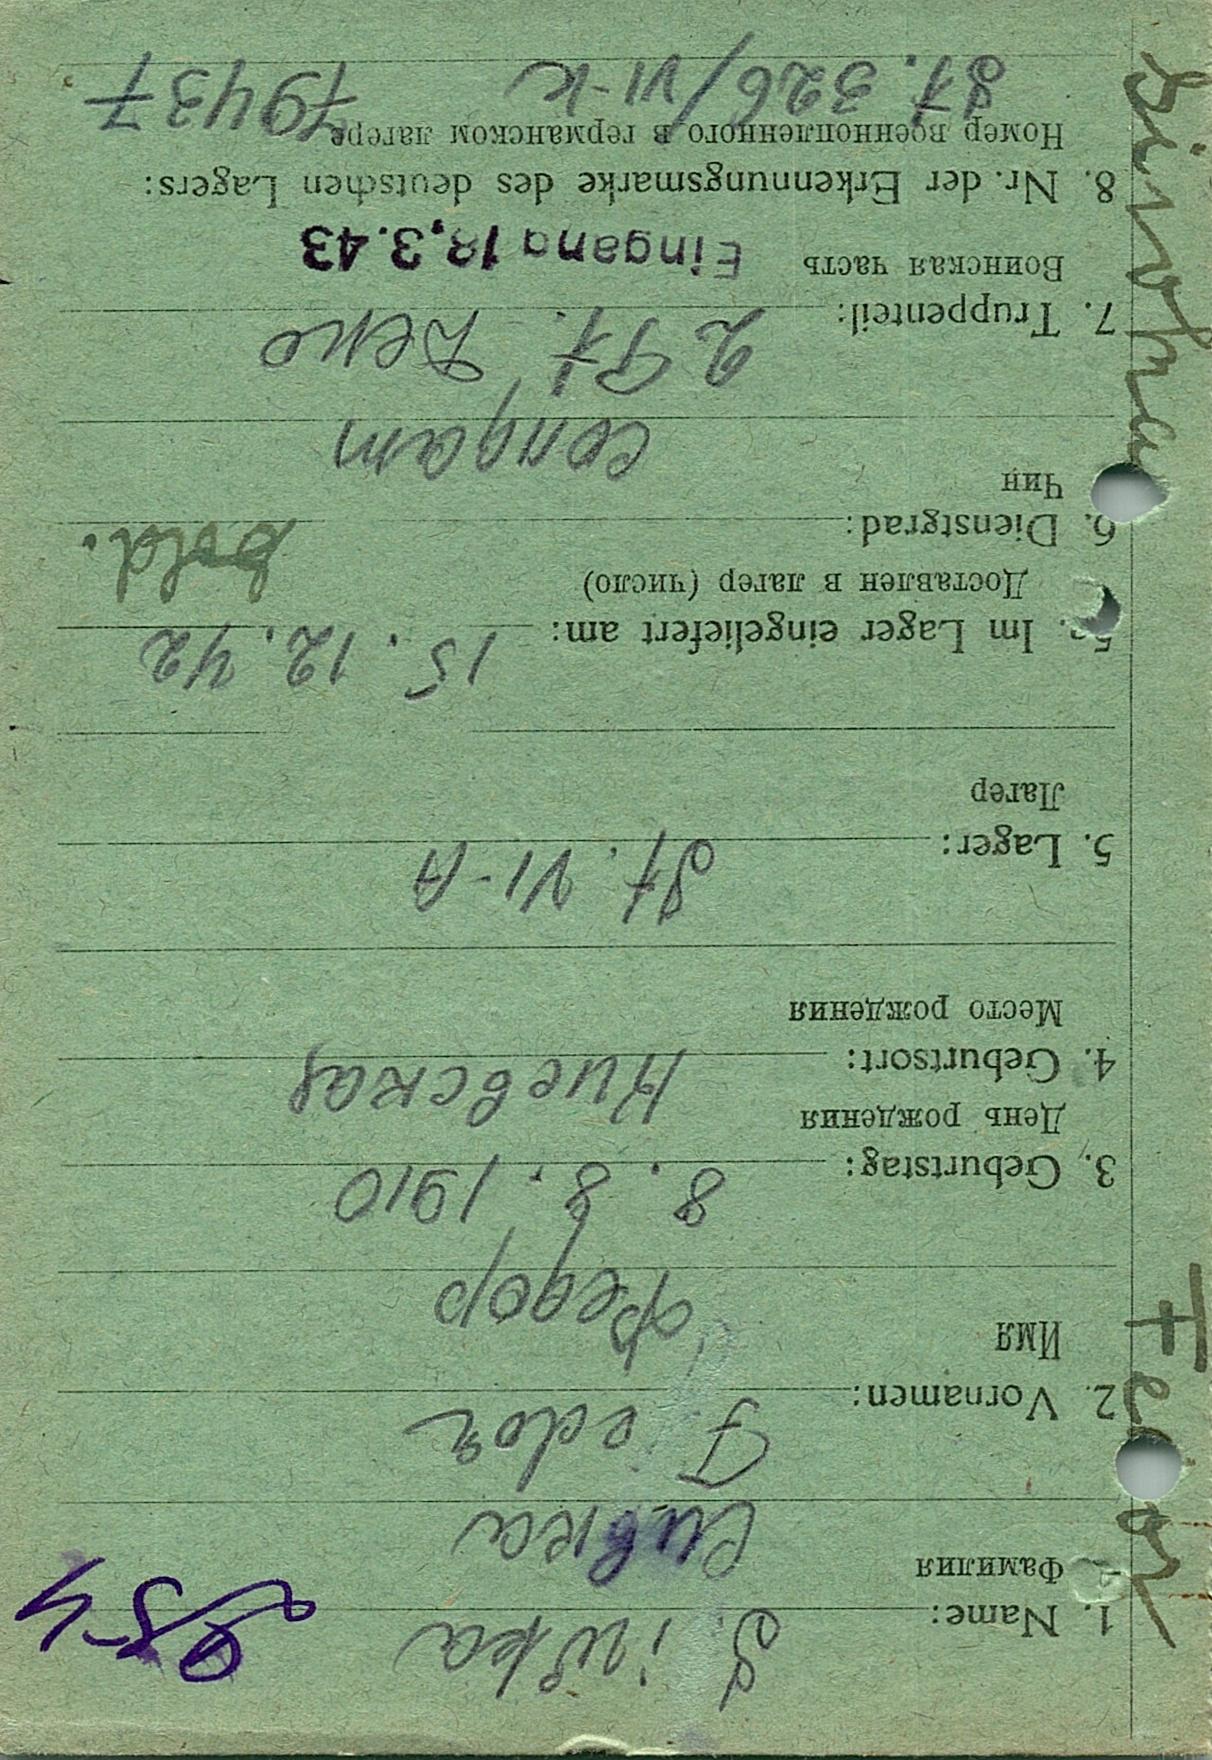 28-4
Siwka
1. Name:
Фамилия
Сивка
Fedor
2. Vornamen:
Имя
Федор
8. 8. 1910
3. Geburtstag:
День рождения
Киевская
4. Geburtsort:
Место рождения
St. VI-A
5. Lager:
Лагер
15. 12. 42
5a. Im Lager eingeliefert am:
Доставлен в лагер (число)
Sold.
6. Dienstgrad:
Чин
солдат
2 Gf.
7. Truppenteil:
Воинская часть Eingang 18.3.43
8. Nr. der Erkennungsmarke des deutschen Lagers:
Номер военнопленного в германском лагере
St. 326/VI-K 79437
Fedor